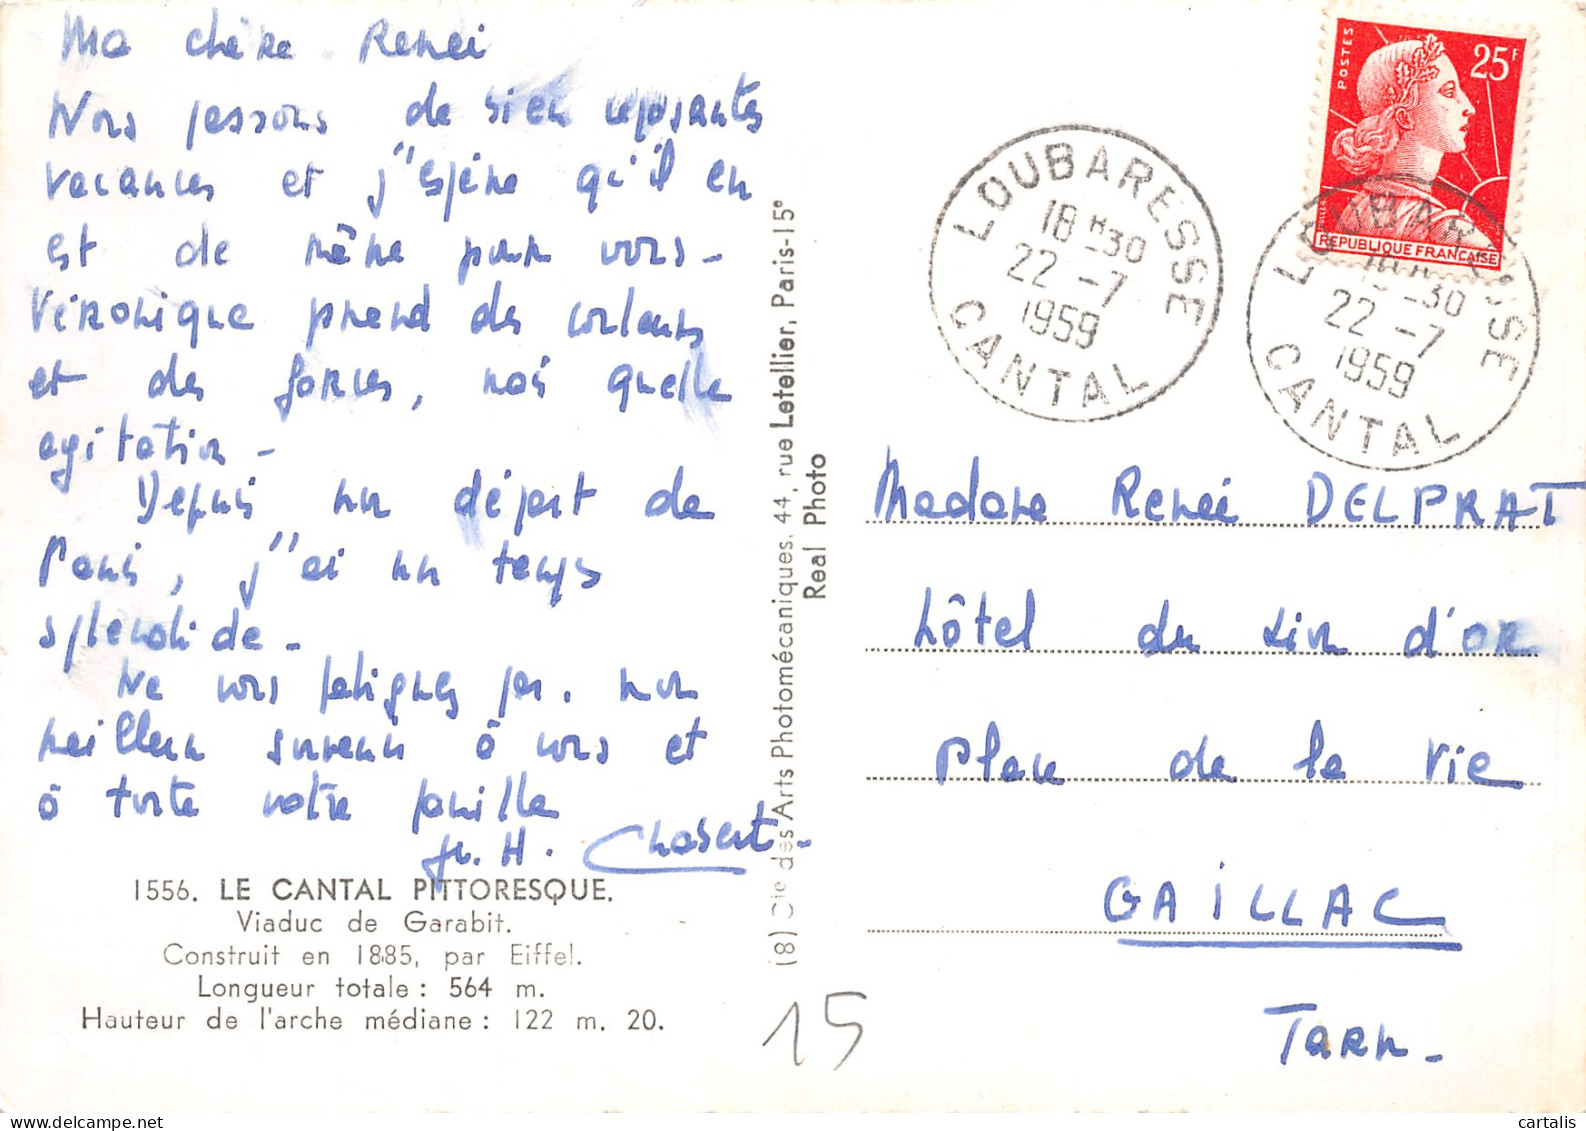 Ma chère Renée
Nous passons de bien reposantes
vacances et j'espère qu'il en
est de même pour vous -
Véronique prend des couleurs
et des forces, mais quelle
agitation -
Depuis mon départ de
Paris, j'ai un temps
splendide -
Ne vous fatiguez pas. mon
meilleur souvenir à vous et
à toute votre famille
H. Chabert.
1556. LE CANTAL PITTORESQUE.
Viaduc de Garabit.
Construit en 1885, par Eiffel.
Longueur totale : 564 m.
Hauteur de l'arche médiane : 122 m. 20.
(8) Cie des Arts Photomécaniques, 44, rue Letellier, Paris-15e
Real Photo
15
POSTES
25F
REPUBLIQUE FRANCAISE
LOUBARESSE
18H30
22 -7
1959
CANTAL
LOUBARESSE
18H-30
22 -7
1959
CANTAL
Madame Renée DELPRAT
hôtel du Lion d'OR
Place de la Vie
GAILLAC
Tarn -
cartalis
www.delcampe.net